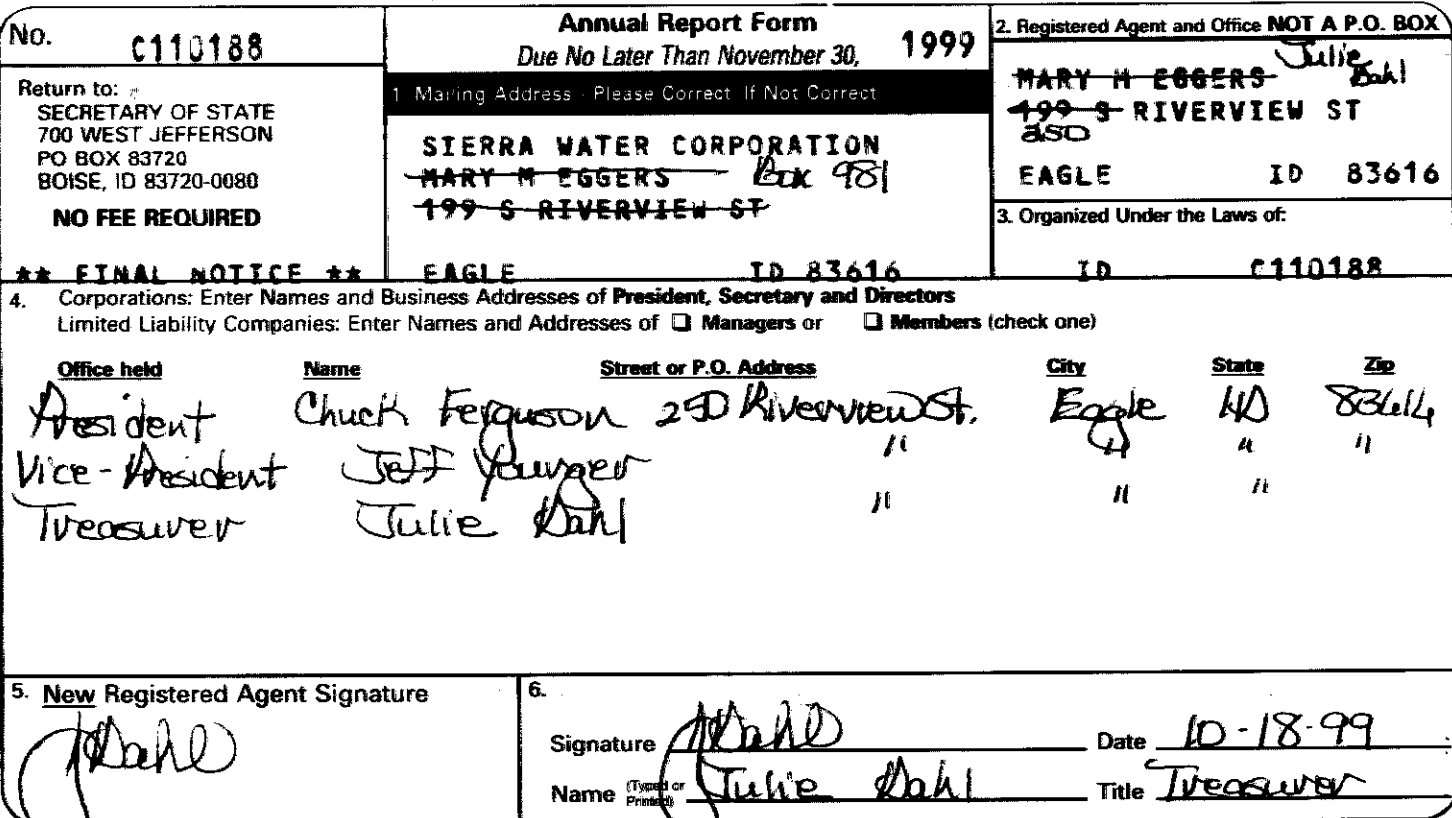 No. C110188
Annual Report Form
Due No Later Than November 30, 1999
Return to:
SECRETARY OF STATE
700 WEST JEFFERSON
PO BOX 83720
BOISE, ID 83720-0080
NO FEE REQUIRED
** FINAL NOTICE **
1 Mailing Address - Please Correct If Not Correct
SIERRA WATER CORPORATION
MARY M EGGERS Box 981
199 S RIVERVIEW ST
EAGLE ID 83616
2. Registered Agent and Office NOT A P.O. BOX
MARY M EGGERS Julie Dahl
199 S RIVERVIEW ST
250
EAGLE ID 83616
3. Organized Under the Laws of:
ID C110188
4. Corporations: Enter Names and Business Addresses of President, Secretary and Directors
Limited Liability Companies: Enter Names and Addresses of ❑ Managers or ❑ Members (check one)
Office held Name Street or P.O. Address City State Zip
President Chuck Ferguson 250 Riverview St. Eagle ID 83616
Vice-President Jeff Younger " " " "
Treasurer Julie Dahl " " "
5. New Registered Agent Signature
JDahl
6.
Signature JDahl Date 10-18-99
Name (Typed or Printed) Julie Dahl Title Treasurer